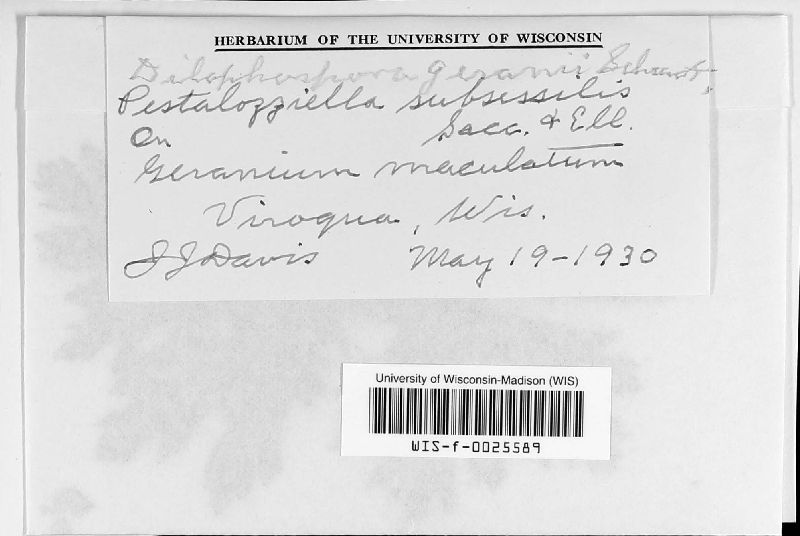 HERBARIUM OF THE UNIVERSITY OF WISCONSIN
Dilophospora geranii
Pestalozziella subsessilis
On Sacc. & Ell.
Geranium maculatum
Viroqua, Wis.
J J Davis May 19-1930
University of Wisconsin-Madison (WIS)
WIS-f-0025589